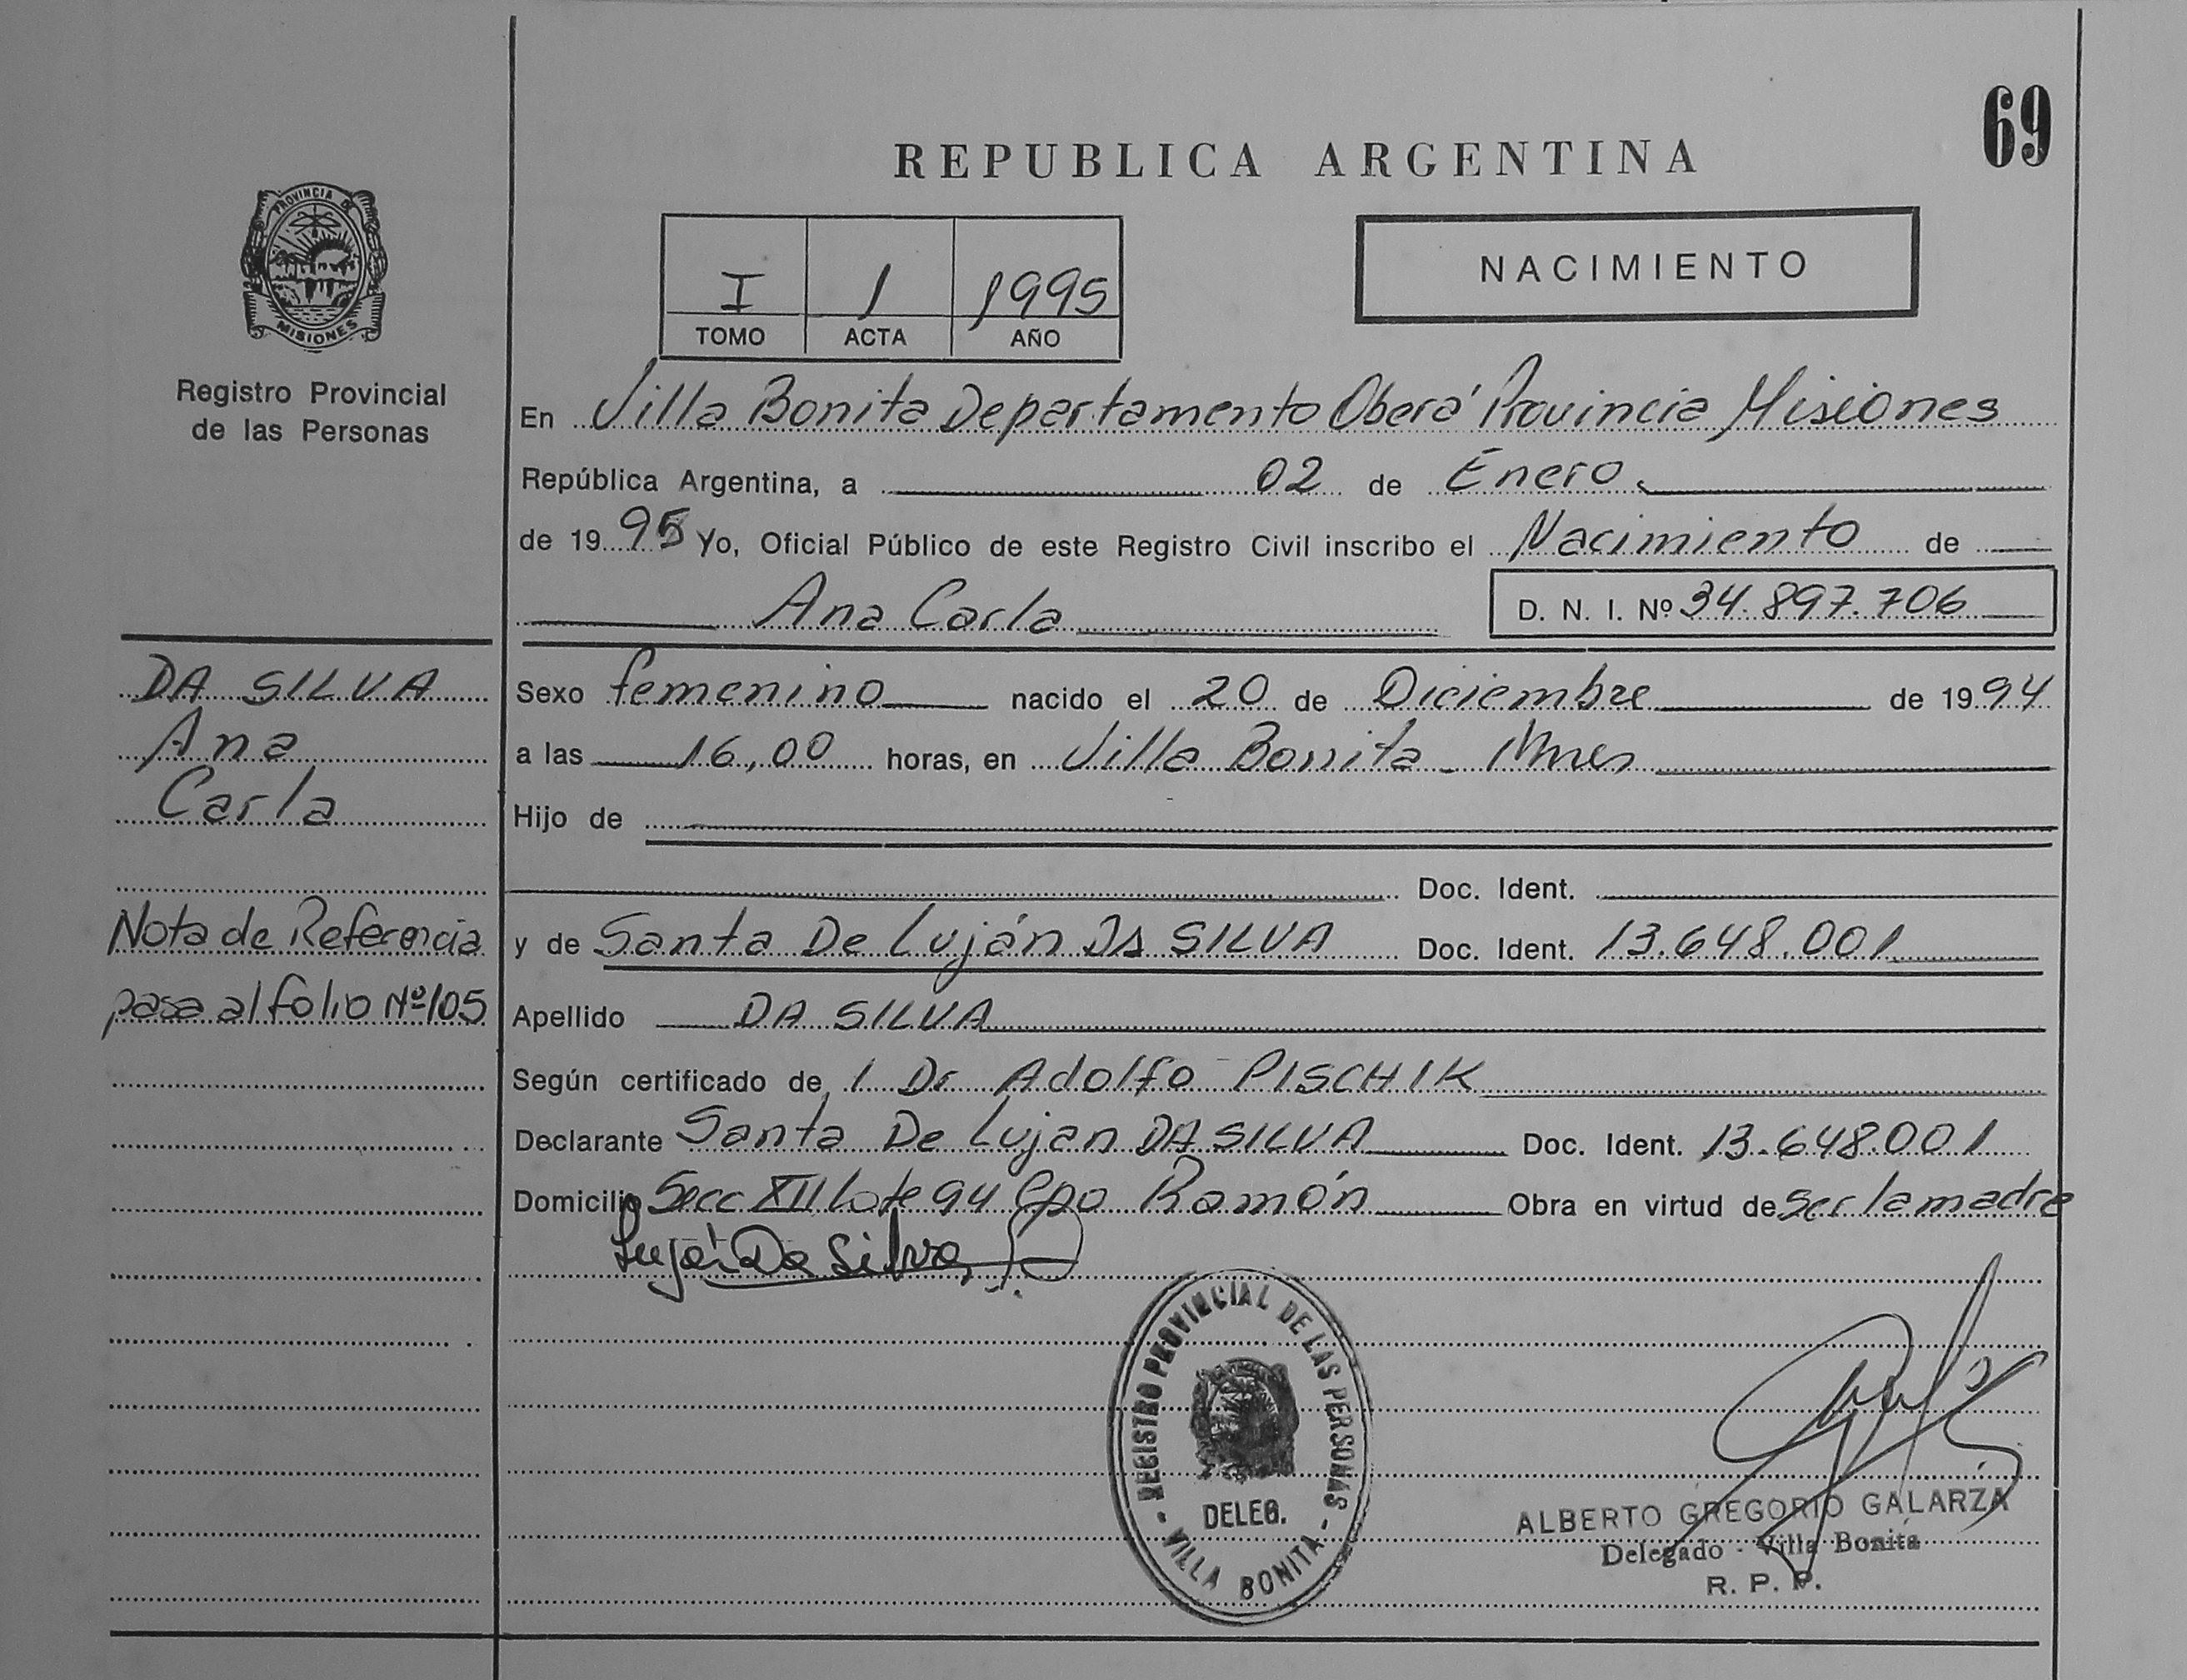 69
REPUBLICA ARGENTINA
PROVINCIA DE
MISIONES
Registro Provincial
de las Personas
I 1 1995
TOMO ACTA AÑO
NACIMIENTO
En Villa Bonita Departamento Oberá Provincia Misiones
República Argentina, a 02 de Enero
de 1995 Yo, Oficial Público de este Registro Civil inscribo el Nacimiento de
Ana Carla D. N. I. Nº 34.897.706
DA SILVA
Ana
Carla
Nota de Referencia
pasa al folio Nº 105
Sexo femenino nacido el 20 de Diciembre de 1994
a las 16,00 horas, en Villa Bonita - Mnes
Hijo de
Doc. Ident.
y de Santa De Luján DA SILVA Doc. Ident. 13.648.001
Apellido DA SILVA
Según certificado de 1 Dr Adolfo PISCHIK
Declarante Santa De Lujan DA SILVA Doc. Ident. 13.648.001
Domicilio Secc XII Lote 94 Cpo Ramón Obra en virtud de ser la madre
Luján Da Silva
REGISTRO PROVINCIAL DE LAS PERSONAS
DELEG.
- VILLA BONITA -
ALBERTO GREGORIO GALARZA
Delegado - Villa Bonita
R. P. P.